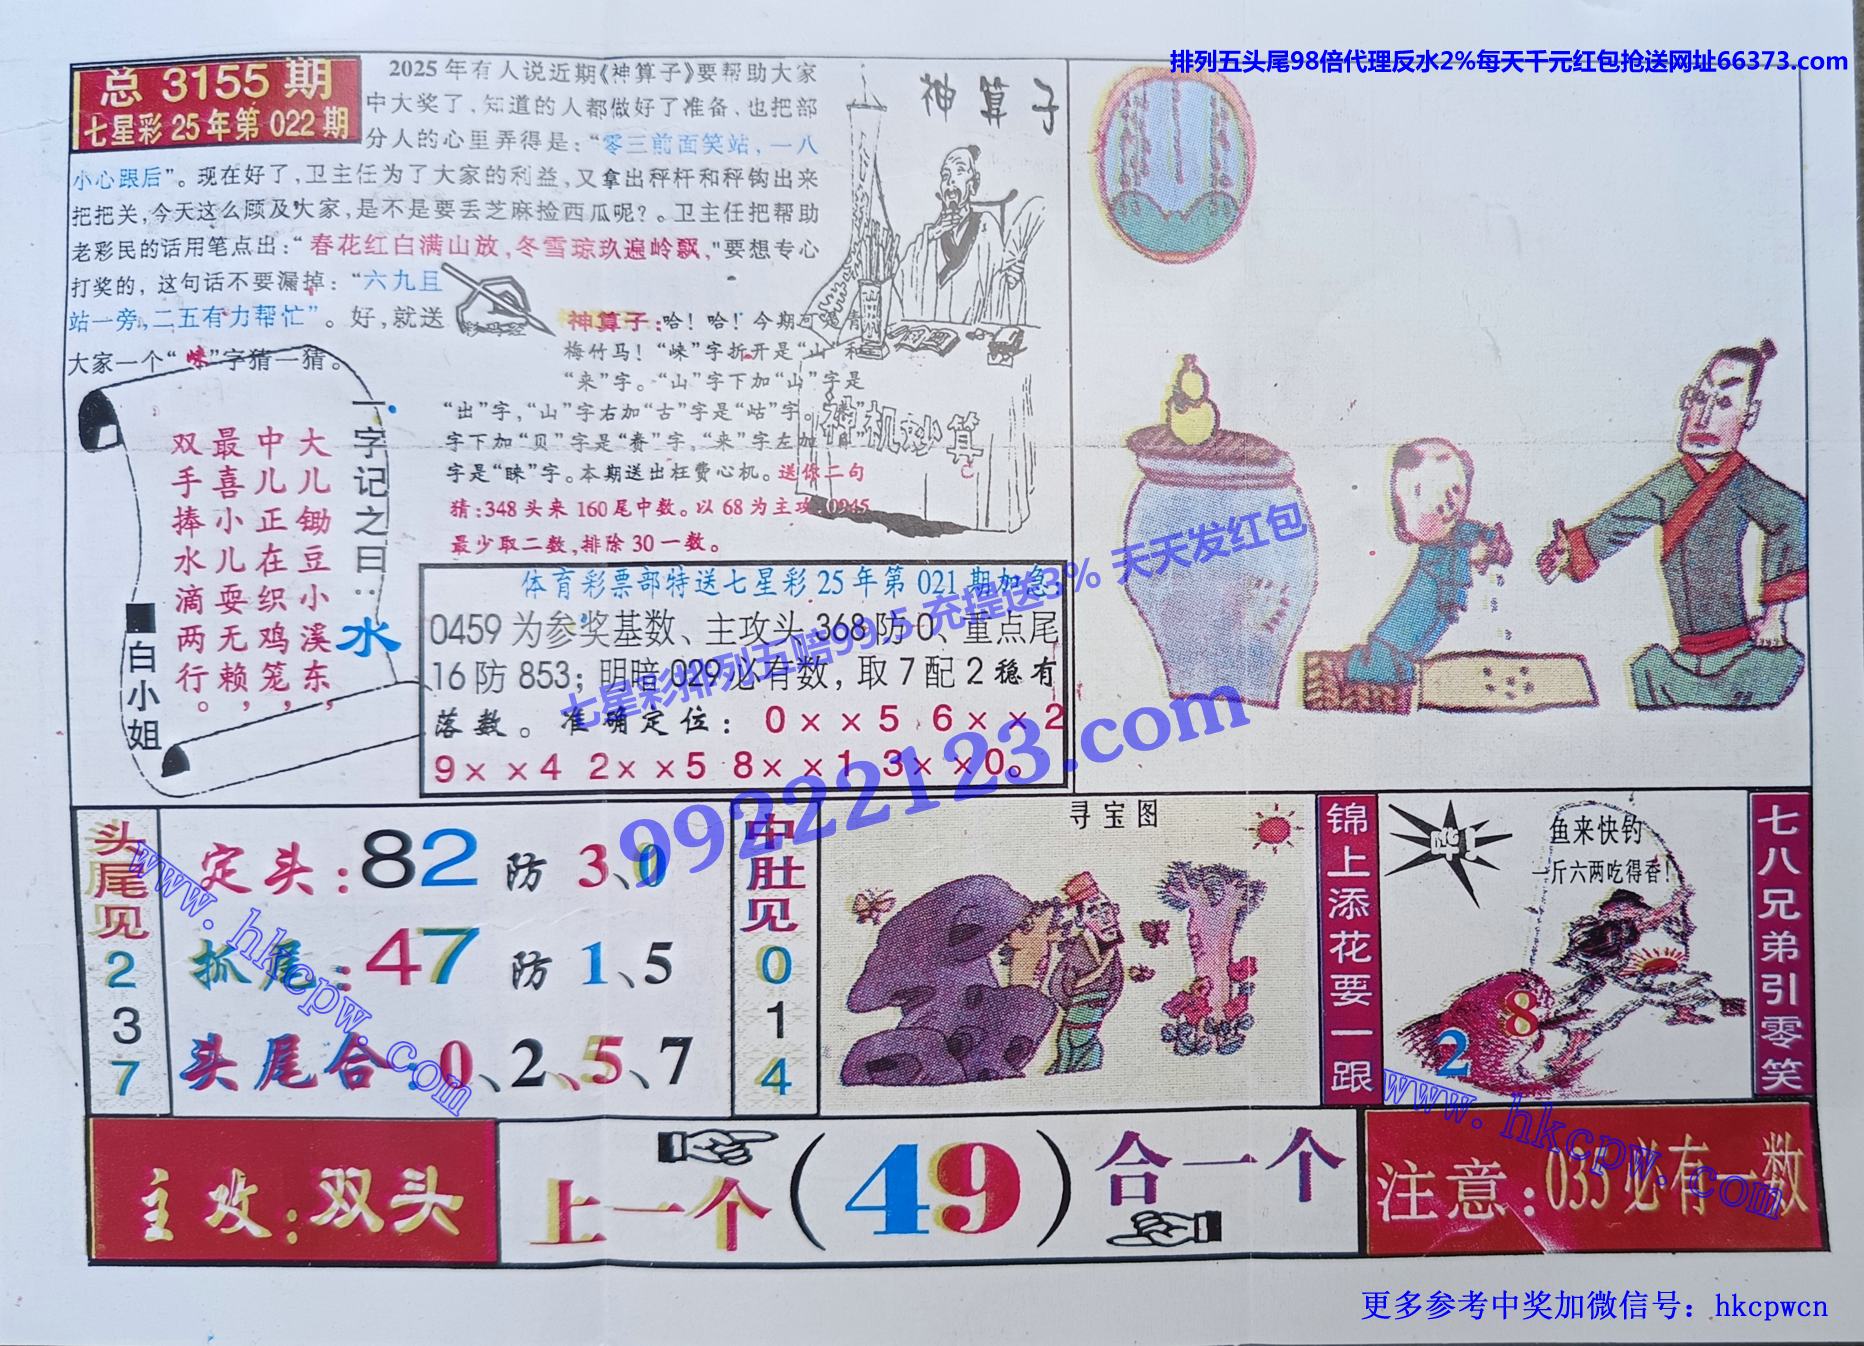 排列五头尾98倍代理反水2%每天千元红包抢送网址66373.com
总 3155 期
七星彩 25 年第 022 期
2025年有人说近期《神算子》要帮助大家
中大奖了，知道的人都做好了准备、也把部
分人的心里弄得是：“零三前面笑站，一八
小心跟后”。现在好了，卫主任为了大家的利益，又拿出秤杆和秤钩出来
把把关，今天这么顾及大家，是不是要丢芝麻捡西瓜呢？。卫主任把帮助
老彩民的话用笔点出：“春花红白满山放，冬雪琼玖遍岭飘，"要想专心
打奖的，这句话不要漏掉：“六九且
站一旁，二五有力帮忙”。好，就送
大家一个“崃”字猜一猜。
神算子
神算子：哈！哈！今期可是青
梅竹马！“崃”字折开是“山”和
“来”字。“山”字下加“山”字是
“出”字，“山”字右加“古”字是“岵”字。
字下加“贝”字是“赉”字，“来”字左加
字是“睐”字。本期送出枉费心机。送你二句
猜：348头来160尾中数。以68为主攻.0945
最少取二数，排除30一数。
神机妙算
一字记之曰：水
大儿锄豆小溪东，
中儿正在织鸡笼，
最喜小儿耍无赖，
双手捧水滴两行。
白小姐
体育彩票部特送七星彩25年第021期加急
0459为参奖基数、主攻头368防0、重点尾
16防853；明暗029必有数，取7配2稳有
落数。准确定位：0××5 6××2
9××4 2××5 8××1 3××0。
七星彩排列五赔99.5 充提送3% 天天发红包
99222123.com
头尾见
2
3
7
定头：82 防 3、0
抓尾：47 防 1、5
头尾合：0、2、5、7
www.hkcpw.com
中肚见
0
1
4
寻宝图
锦上添花要一跟
鱼来快钓
一斤六两吃得香！
2 8
七八兄弟引零笑
www.hkcpw.com
主攻：双头
上一个（49）合一个
注意：035必有一数
更多参考中奖加微信号：hkcpwcn